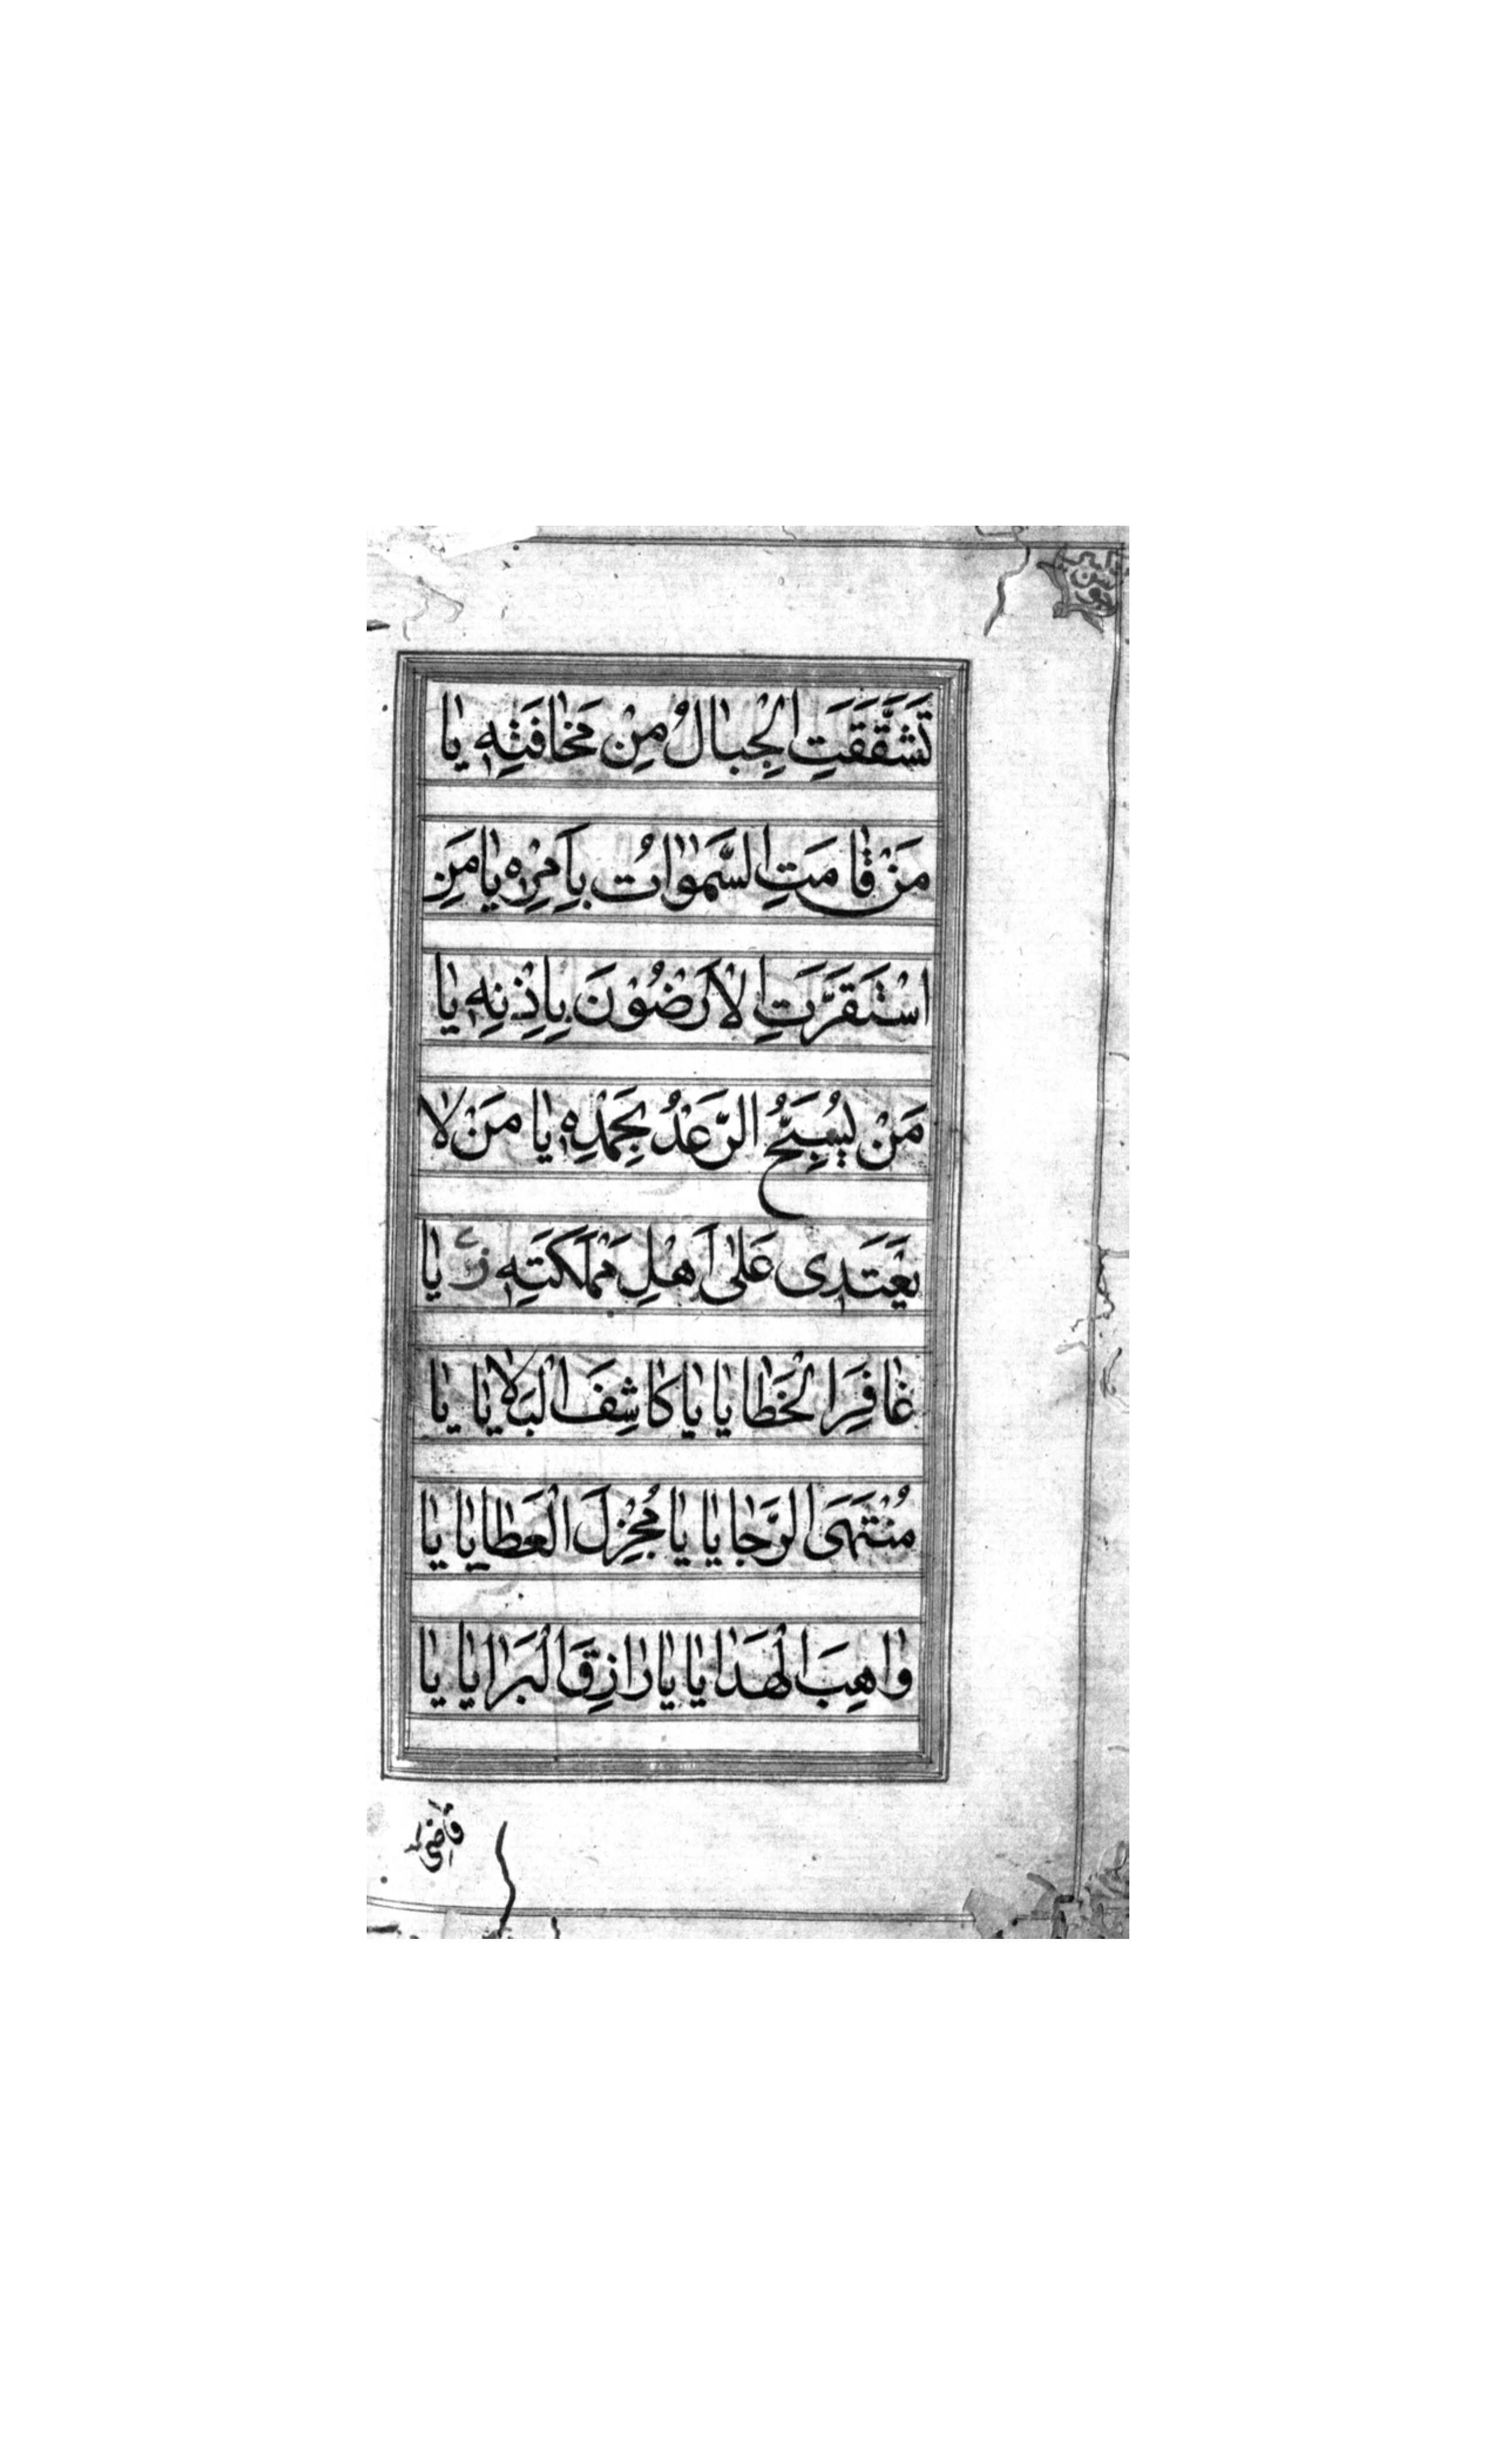 تَشَقَّقَتِ الْجِبٰالُ مِنْ مَخٰافَتِهِ يٰا
مَنْ قٰامَتِ السَّمٰوٰاتُ بِاَمْرِهِ يٰا مَنِ
اسْتَقَرَّتِ الْاَرَضُوْنَ بِاِذْنِهِ يٰا
مَنْ يُسَبِّحُ الرَّعْدُ بِحَمْدِهِ يٰا مَنْ لٰا
يَعْتَدِى عَلٰى اَهْلِ مَمْلَكَتِهِ يٰا
غٰافِرَ الْخَطٰايٰا يٰا كٰاشِفَ الْبَلٰايٰا يٰا
مُنْتَهَى الرَّجٰايٰا يٰا مُجْزِلَ الْعَطٰايٰا يٰا
وٰاهِبَ الْهَدٰايٰا يٰا رٰازِقَ الْبَرٰايٰا يٰا
قاضى